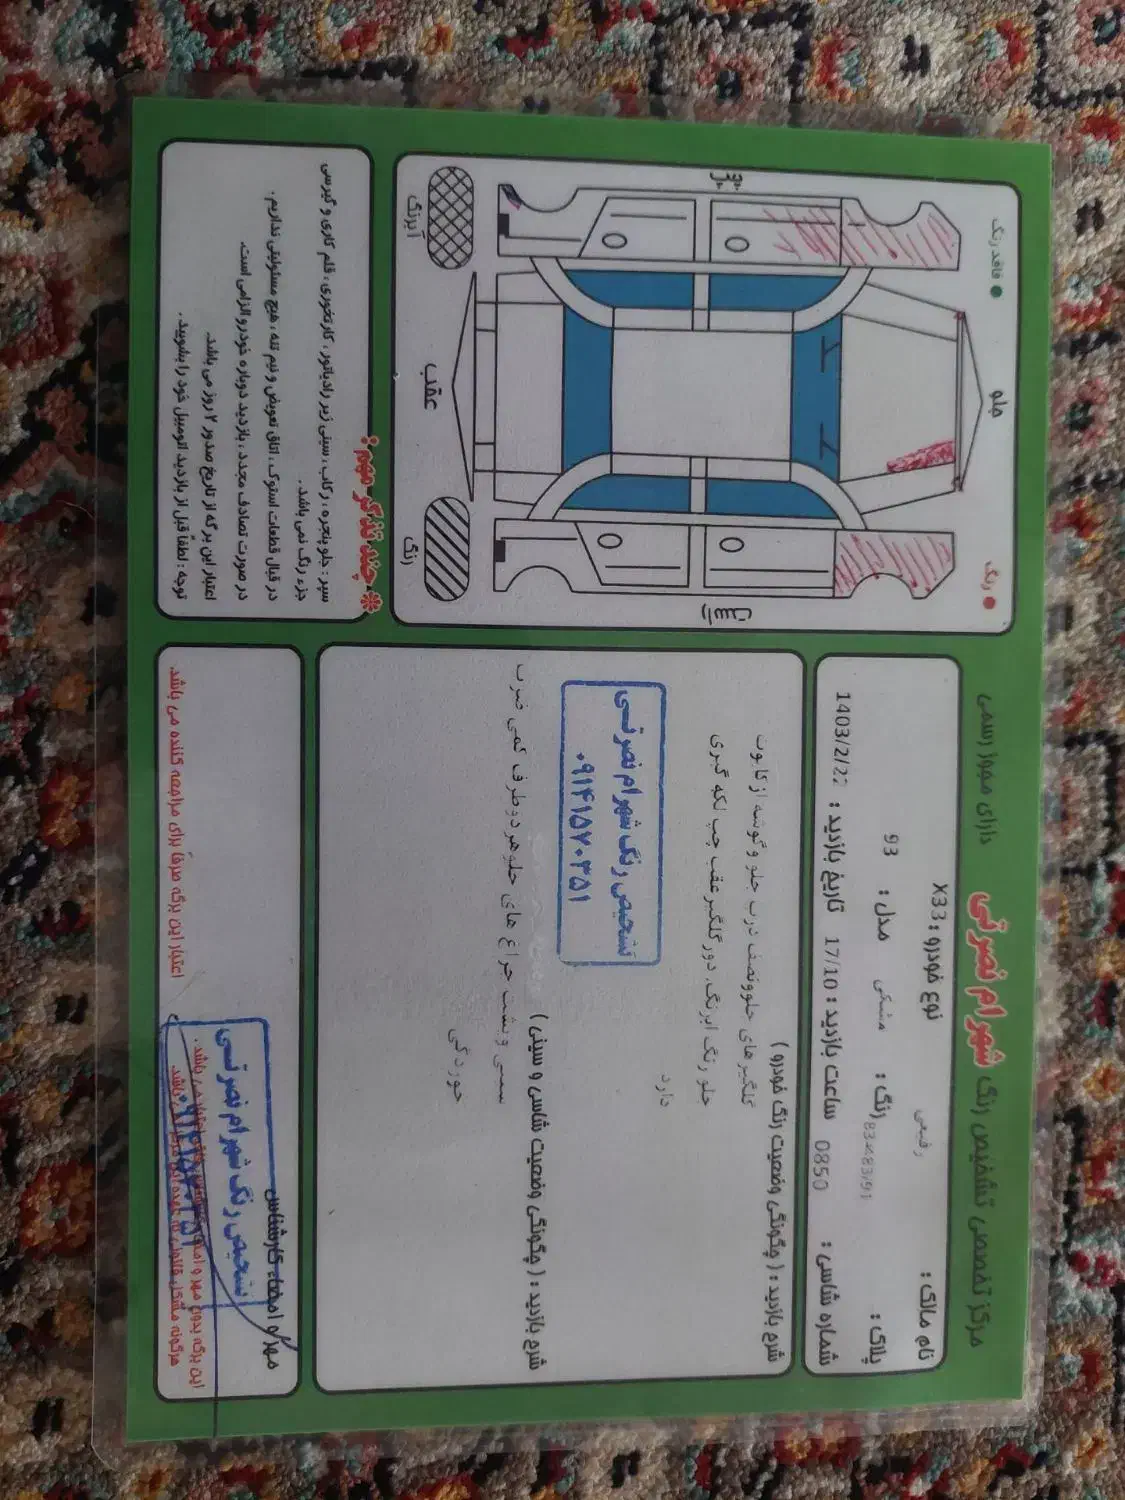 مرکز تخصصی تشخیص رنگ شهرام نصرتی دارای مجوز رسمی
نام مالک : رفیعی نوع خودرو : X33
پلاک : رنگ : مشکی مدل : 93
شماره شاسی : 0850 ساعت بازدید : 17/10 تاریخ بازدید : 1403/2/22
شرح بازدید : ( چگونگی وضعیت رنگ خودرو )
گلگیر های جلوونصف درب جلو و گوشه از کاپوت
جلو رنگ ابرنگ، دور گلگیر عقب چپ لکه گیری
دارد
تشخیص رنگ شهرام نصرتی
۰۹۱۴۱۵۷۰۳۵۱
شرح بازدید : ( چگونگی وضعیت شاسی و سینی )
سینی وپشت چراغ های جلوهر دوطرف کمی ضرب
خوردگی
مهر و امضاء کارشناس
تشخیص رنگ شهرام نصرتی
این برگه بدون مهر و امضاء
اعتبار این برگه صرفا برای مراجعه کننده می باشد
فاقد رنگ
جلو
رنگ
عقب
آبرنگ
رنگ
چند تذکر مهم :
سپر : جلو پنجره ، رکاب ، سینی زیر رادیاتور ، کارتخوری ، قلم کاری و گیرسی
جزء رنگ نمی باشد.
در قبال قطعات استوک ، اتاق تعویض و نیم تنه ، هیچ مسئولیتی نداریم.
در صورت تصادف مجدد ، بازدید دوباره خودرو الزامی است.
اعتبار این برگه از تاریخ صدور ۲ روز می باشد.
توجه : لطفا قبل از بازدید اتومبیل خود را بشویید.